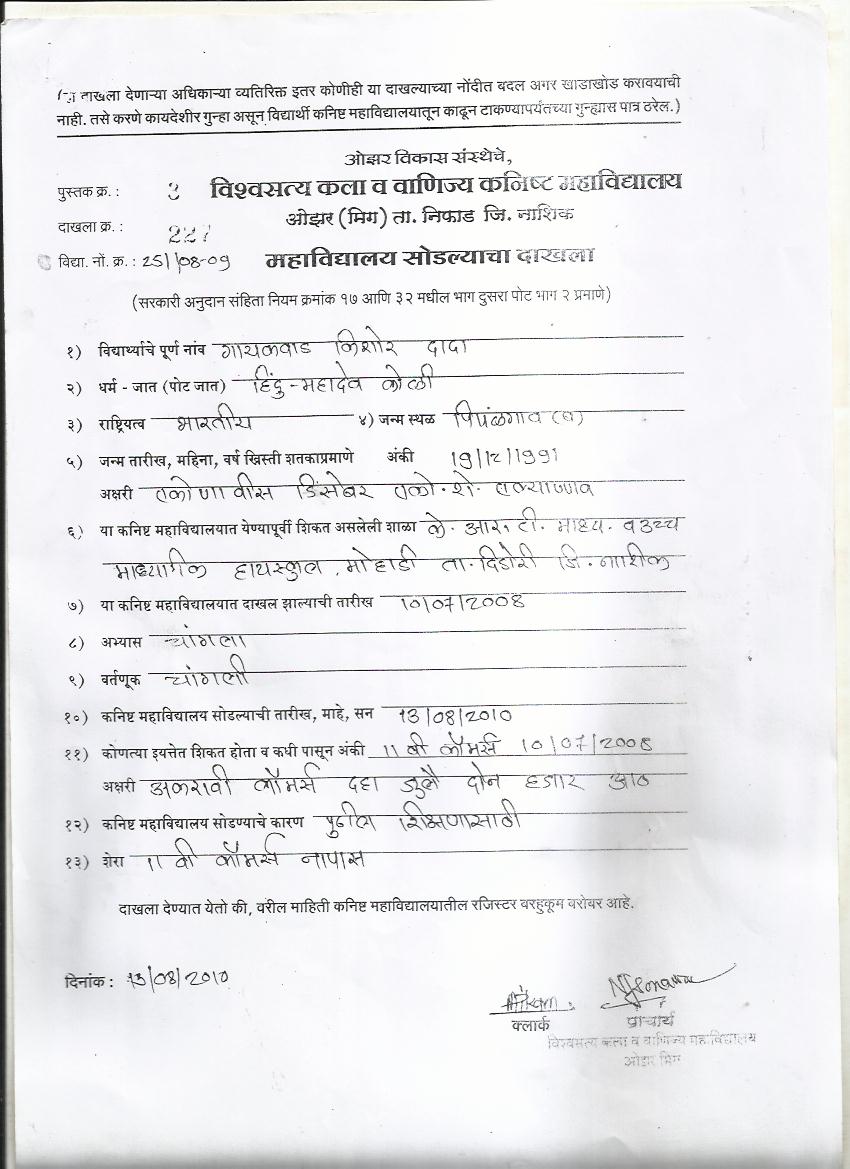 (हा दाखला देणाऱ्या अधिकाऱ्या व्यतिरिक्त इतर कोणीही या दाखल्याच्या नोंदीत बदल अगर खाडाखोड करावयाची
नाही. तसे करणे कायदेशीर गुन्हा असून विद्यार्थी कनिष्ट महाविद्यालयातून काढून टाकण्यापर्यंतच्या गुन्ह्यास पात्र ठरेल.)
ओझर विकास संस्थेचे,
पुस्तक क्र. : 3 विश्वसत्य कला व वाणिज्य कनिष्ट महाविद्यालय
ओझर (मिग) ता. निफाड जि. नाशिक
दाखला क्र. : 227
विद्या. नों. क्र. : 251/08-09 महाविद्यालय सोडल्याचा दाखला
(सरकारी अनुदान संहिता नियम क्रमांक १७ आणि ३२ मधील भाग दुसरा पोट भाग २ प्रमाणे)
१) विद्यार्थ्याचे पूर्ण नांव गायकवाड किशोर दादा
२) धर्म - जात (पोट जात) हिंदु-महादेव कोळी
३) राष्ट्रियत्व भारतीय ४) जन्म स्थळ पिंपळगाव (ब)
५) जन्म तारीख, महिना, वर्ष ख्रिस्ती शतकाप्रमाणे अंकी 19/12/1991
अक्षरी एकोणावीस डिसेंबर एको.शे. एक्याण्णव
६) या कनिष्ट महाविद्यालयात येण्यापूर्वी शिकत असलेली शाळा के. आर. टी. माध्य. व उच्च
माध्यामिक हायस्कुल, मोहाडी ता. दिंडोरी जि. नाशिक
७) या कनिष्ट महाविद्यालयात दाखल झाल्याची तारीख 10/07/2008
८) अभ्यास चांगला
९) वर्तणूक चांगली
१०) कनिष्ट महाविद्यालय सोडल्याची तारीख, माहे, सन 13/08/2010
११) कोणत्या इयत्तेत शिकत होता व कधी पासून अंकी 11 वी कॉमर्स 10/07/2008
अक्षरी अकरावी कॉमर्स दहा जुलै दोन हजार आठ
१२) कनिष्ट महाविद्यालय सोडण्याचे कारण पुढील शिक्षणासाठी
१३) शेरा 11 वी कॉमर्स नापास
दाखला देण्यात येतो की, वरील माहिती कनिष्ट महाविद्यालयातील रजिस्टर बरहुकूम बरोबर आहे.
दिनांक : 13/08/2010
क्लार्क प्राचार्य
विश्वसत्य कला व वाणिज्य महाविद्यालय
ओझर मिग